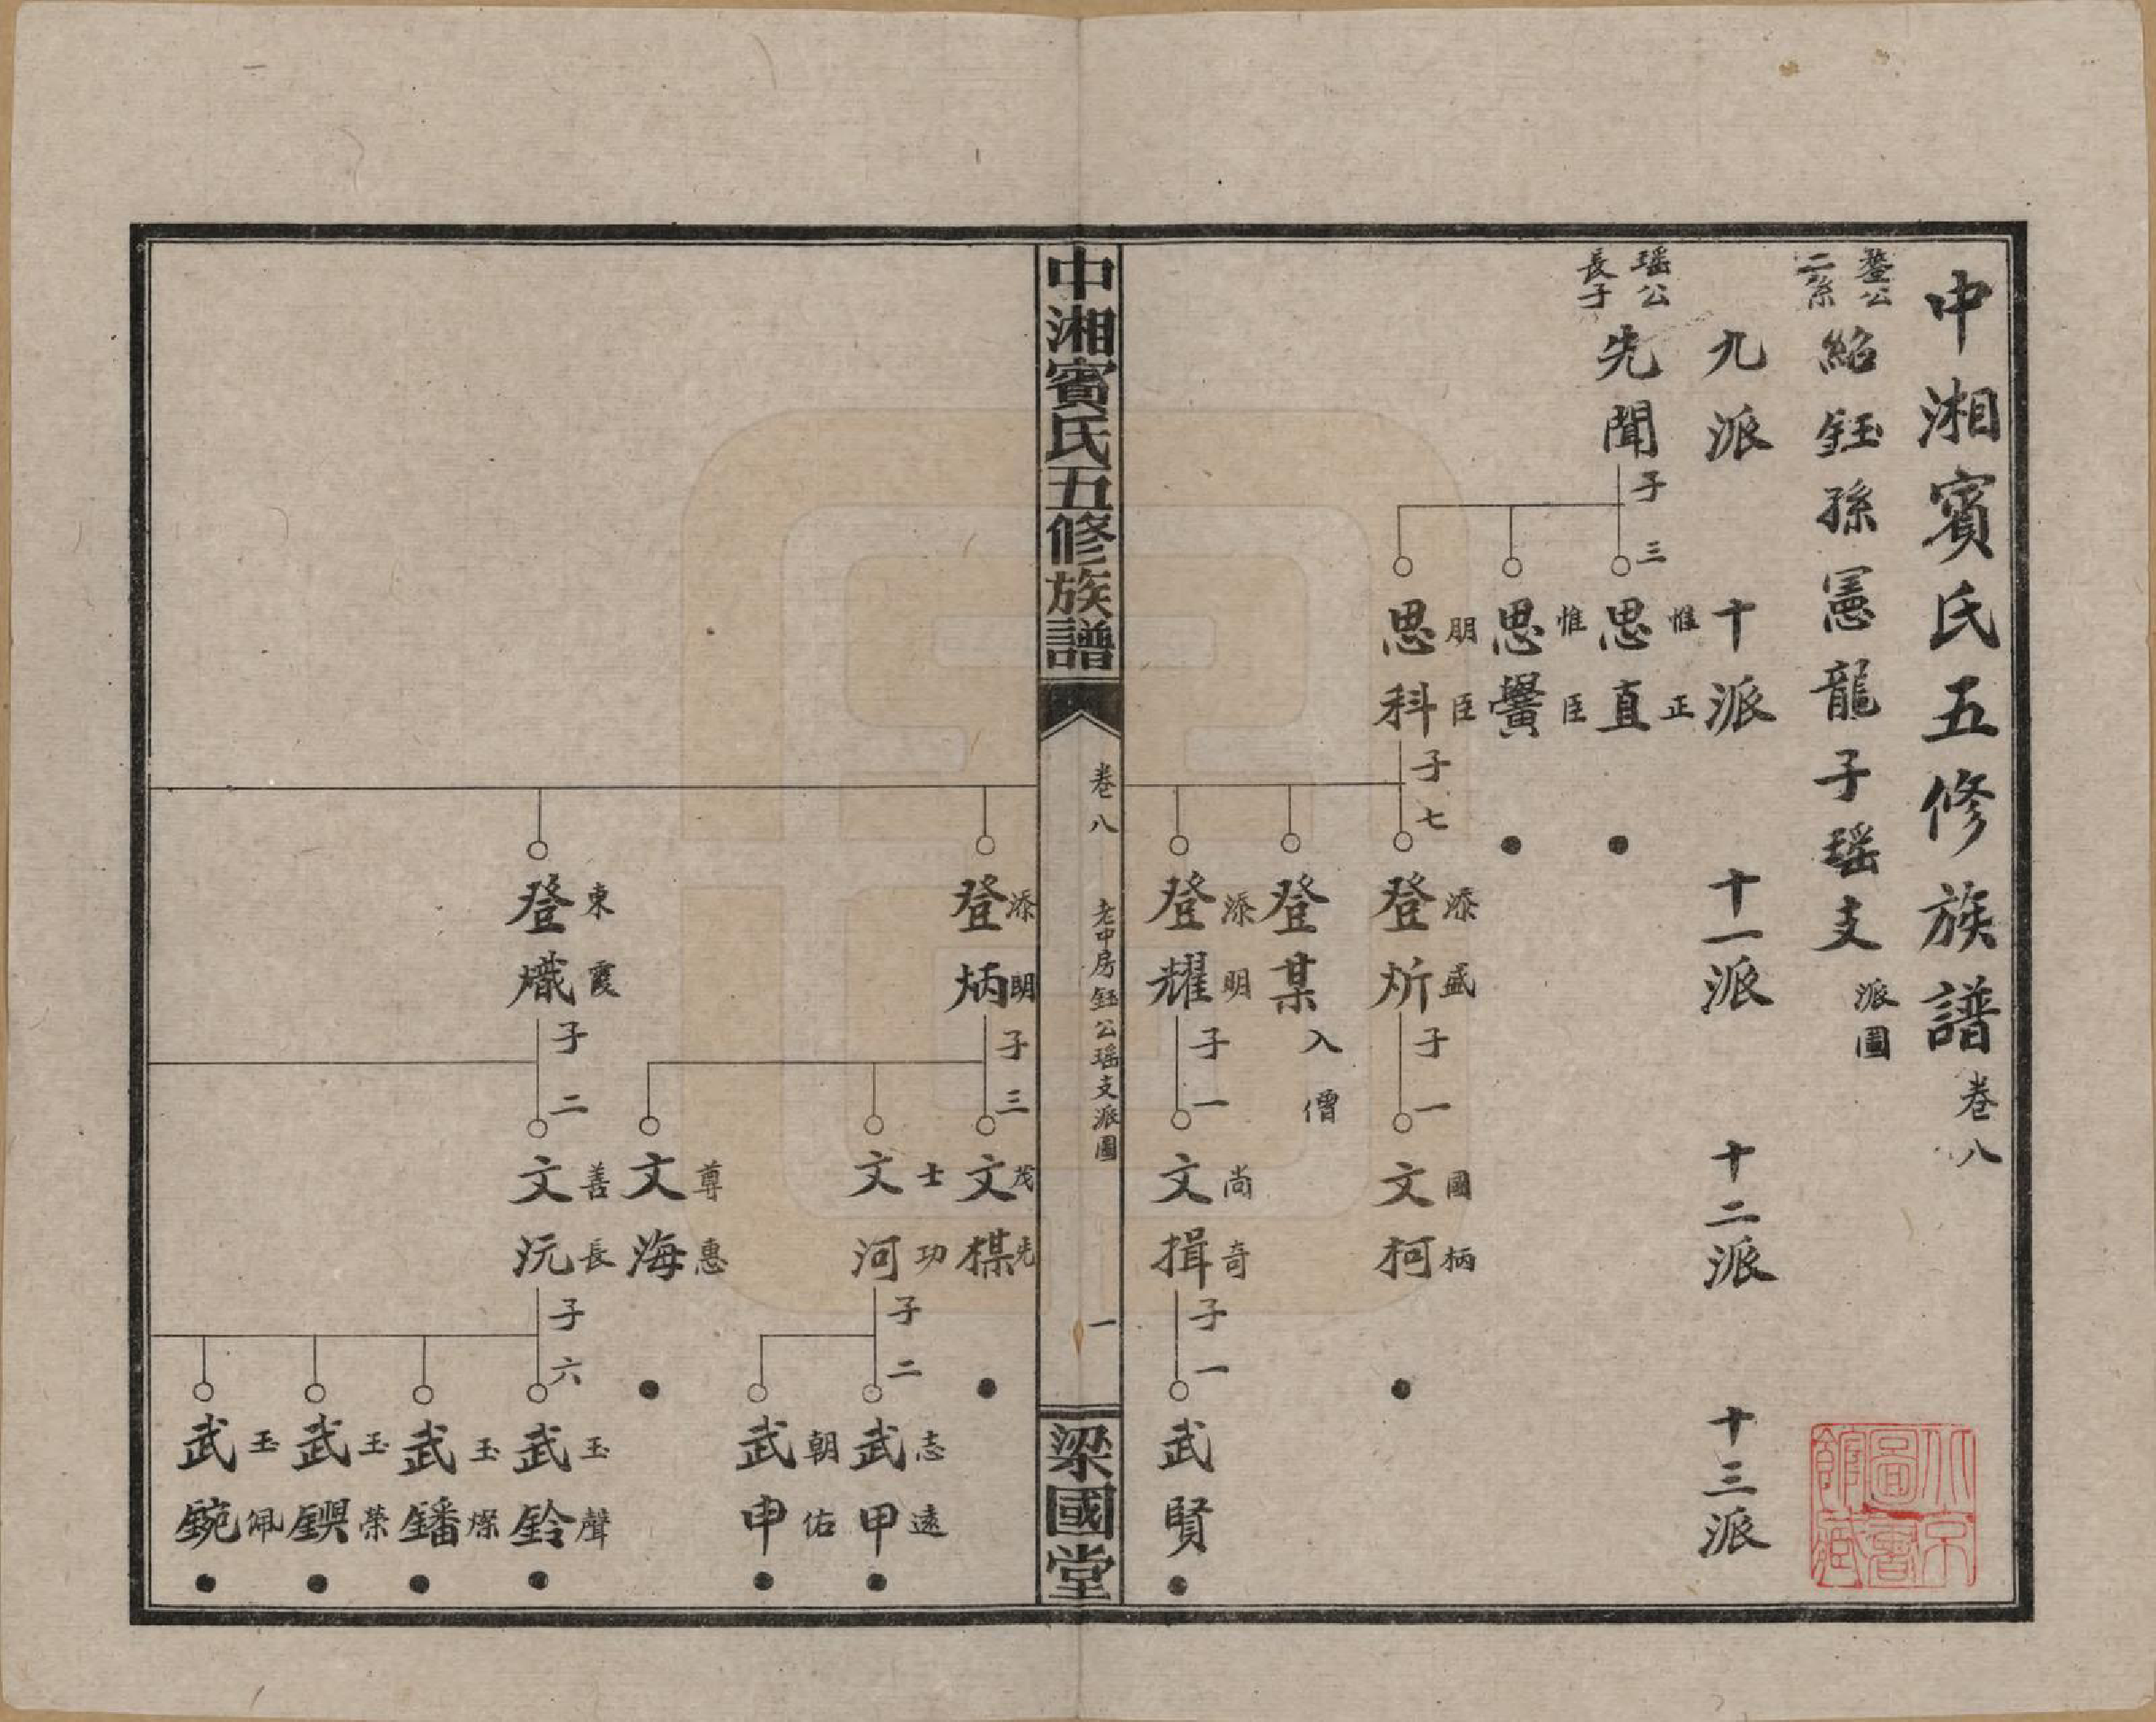 中湘賓氏五修族譜卷八
鏊公二系
紹鈺孫憲龍子瑶支派圖
九派 十派 十一派 十二派 十三派
瑶公長子
先聞 子三
惟正
思直
惟臣
思黌
朋臣
思科 子七
添盛
登炘 子一
國柄
文柯
登某 入僧
添明
登耀 子一
尚奇
文揖 子一
武賢
中湘賓氏五修族譜
卷八
老中房鈺公瑶支派圖
一
梁國堂
添明
登炳 子三
茂先
文楳
士功
文河 子二
志遠
武甲
朝佑
武申
尊惠
文海
東霞
登熾 子二
善長
文沅 子六
玉聲
武鈴
玉燦
武鐇
玉榮
武鐉
玉佩
武鋺
北京圖書館藏